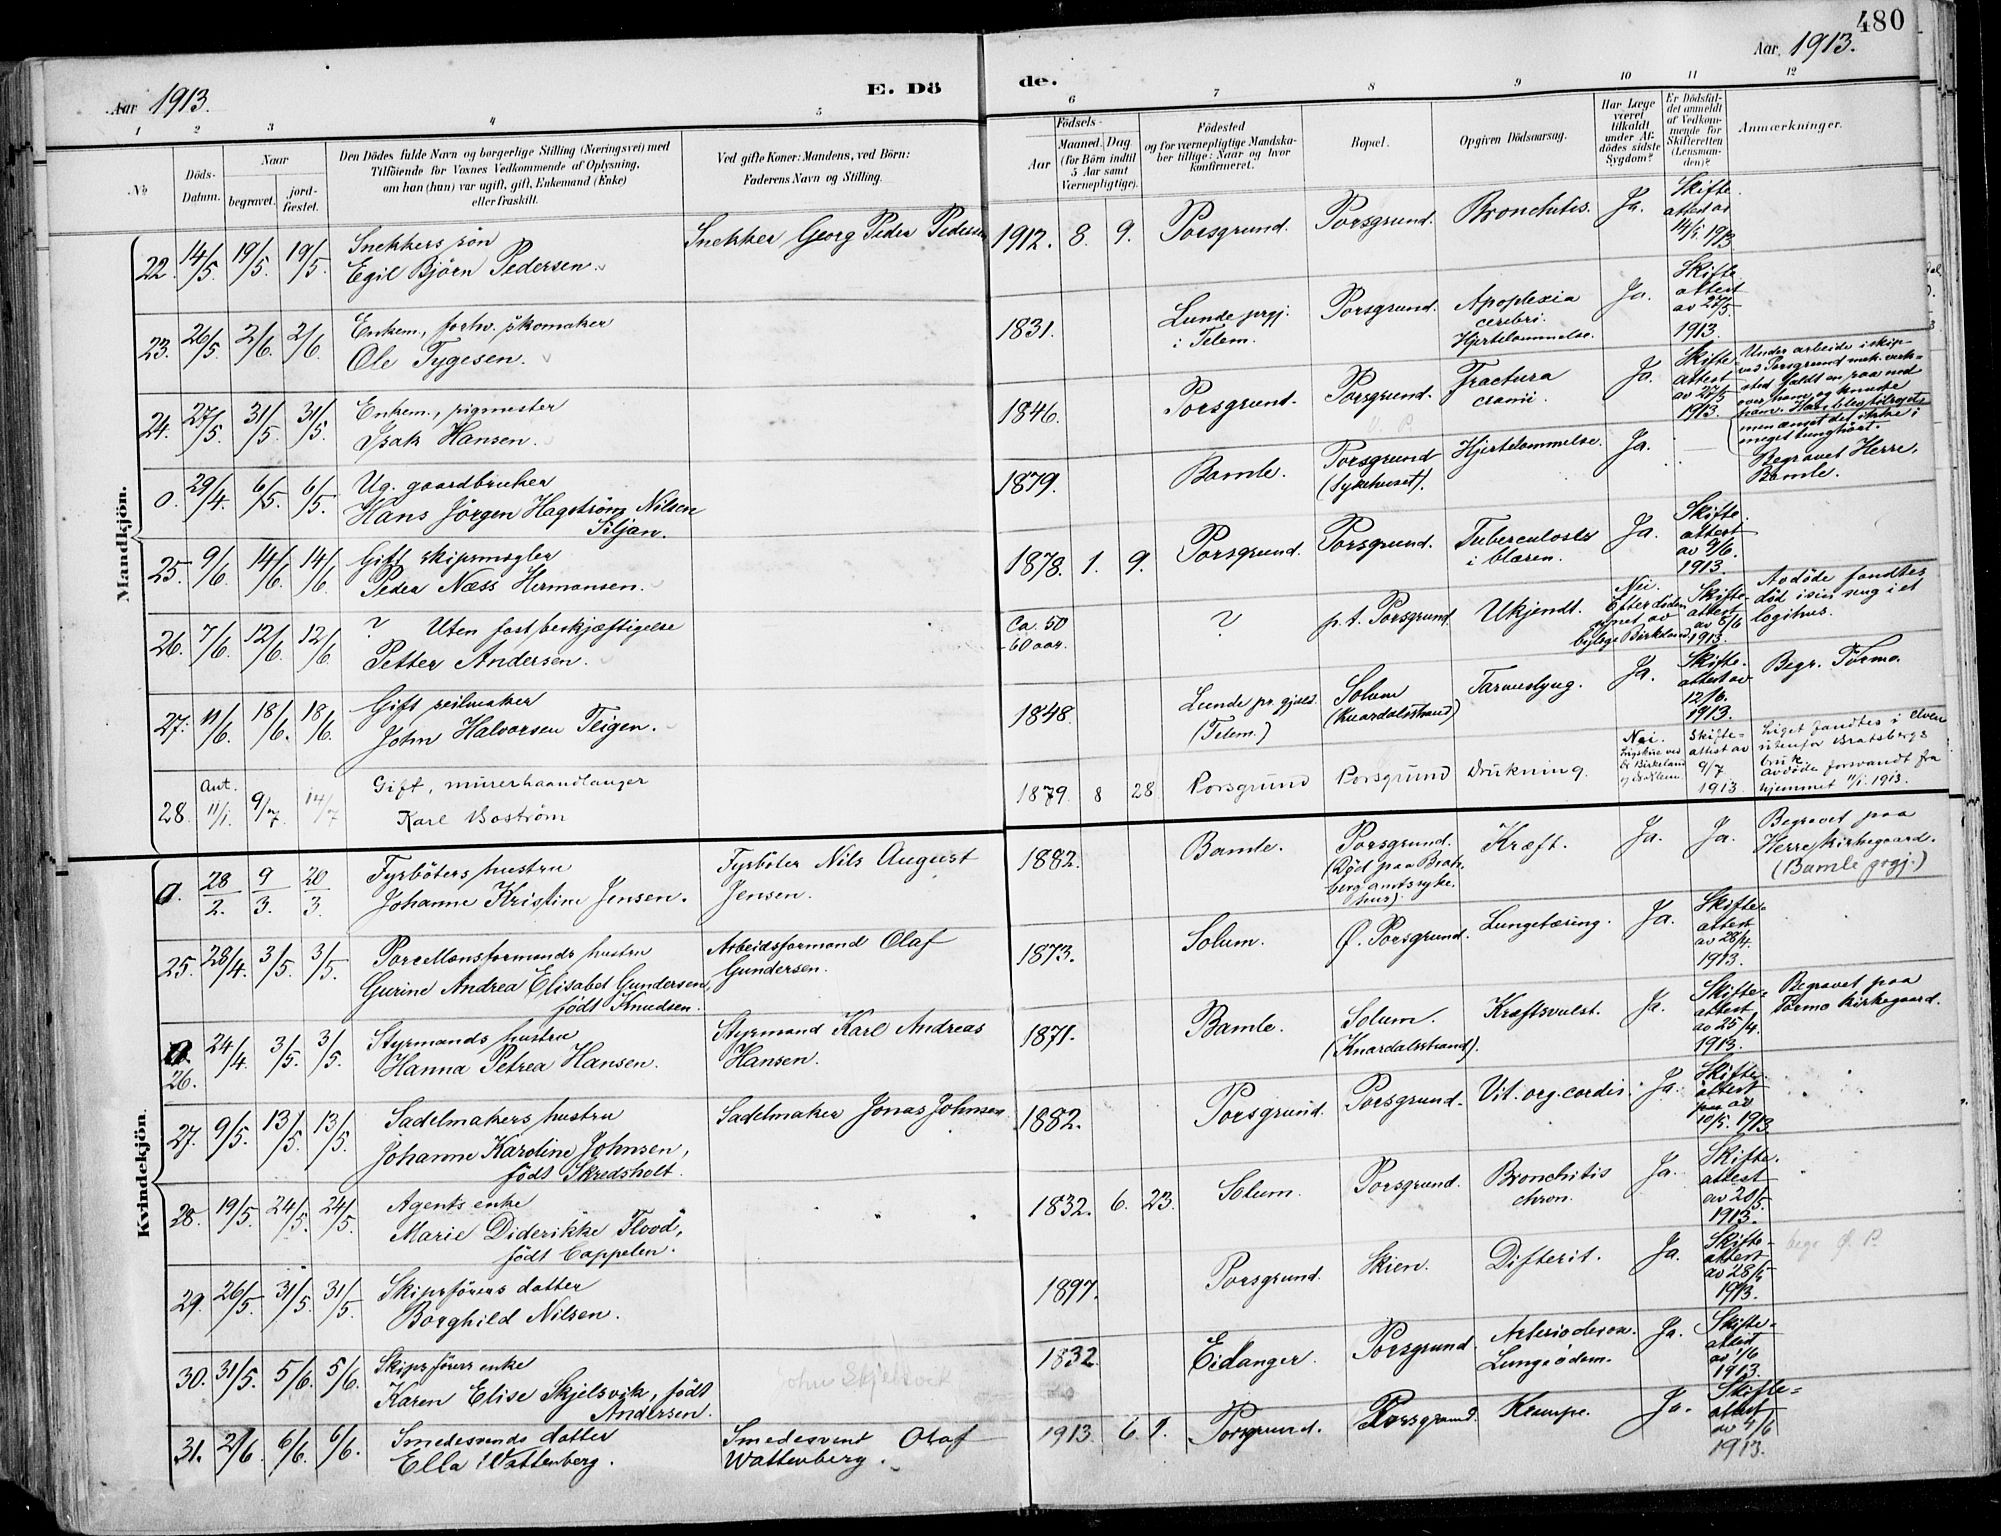 480
Aar 1913.
E. Dö de.
Aar. 1913.
1 2 3 4 5 6 7 8 9 10 11 12
No
Döds-Datum.
Naar begravet. jordfæstet.
Den Dödes fulde Navn og borgerlige Stilling (Næringsvei) med
Tilföiende for Voxnes Vedkommende af Oplysning,
om han (hun) var ugift, gift, Enkemand (Enke)
eller fraskilt.
Ved gifte Koner: Mandens, ved Börn:
Faderens Navn og Stilling.
Födsels-
Aar Maaned. Dag
(for Börn indtil 5 Aar samt Værnepligtige).
Födested
og for værnepligtige Mandska-
ber tillige: Naar og hvor
konfirmeret.
Bopæl.
Opgiven Dödsaarsag.
Har Læge været tilkaldt under Afdödes sidste Sygdom?
Er Dödsfaldet anmeldt af Vedkommende for Skifteretten (Lensmanden)?
Anmærkninger.
Mandkjön.
22. 14/5 19/5. 19/5. Snekkers sön
Egil Björn Pedersen. Snekker Georg Peder Pedersen 1912. 8. 9. Porsgrund. Porsgrund. Bronchitis. Ja. Skifte.
attest av
14/5. 1913
23. 26/5 2/6 2/6 Enkem., forhv. skomaker
Ole Tygesen. 1831. Lunde prgj.
i Telem. Porsgrund. Apoplexia
cerebri.
Hjertelammelse. Ja. Skifte
attest
av 27/5
1913.
24. 27/5. 31/5 31/5. Enkem., rigmester
Isak Hansen. 1846. Porsgrund. Porsgrund. Fractura
cranii. Ja. Skifte-
attest
av 27/5
1913. Under arbeide i skip
ved Porsgrund mek. verk=
sted faldt en paa ned
over ham, og knuste
ham. Han blev tilropt,
men ænset det ikke i
meget tunghört.
0. 29/4. 6/5. 6/5. Ug. gaardbruker
Hans Jörgen Hagström Nilsen
Siljan. 1879. Bamle. Porsgrund
(Sykehuset). Hjertelammelse. Ja. Begravet Herre,
Bamle.
25. 9/6. 14/6. 14/6. Gift skipsmegler
Peder Næss Hermansen. 1878. 1. 9. Porsgrund. Porsgrund. Tuberculosis
i blæren. Ja. Skifte.
attest
av 9/6.
1913
26. 7/6. 12/6. 12/6. ? Uten fast beskjæftigelse
Petter Andersen. Ca. 50
-60 aar. ? p.t. Porsgrund. Ukjendt. Nei.
Efter döden
synet av
bylæge Birkeland. Skifte-
attest
av 8/6
1913. Avdöde fandtes
död i sin seng i et
logihus.
27. 11/6. 18/6. 18/6. Gift seilmaker
John Halvorsen Teigen. 1848. Lunde pr.gjæld.
(Telem.) Solum
(Knardalsstrand) Tarmeslyng. Ja. Skifte-
attest av
12/6.
1913. Begr. Tormo.
28. Ant.
11/1. 9/7. 14/7 Gift, murerhaandlanger
Karl Boström 1879. 8 28 Porsgrund Porsgrund Drukning. Nei.
Dr Birkeland Skifte-
attest av
9/7
1913. Liget fandtes i elven
utenfor Bratsbergs
bruk
Avdöde forsvandt fra
hjemmet 11/1. 1913.
Kvindekjön.
0. 28/2. 9/3. 20/3 Fyrböters hustru
Johanne Kristine Jensen. Fyrböter Nils August
Jensen. 1882. Bamle. Porsgrund.
(Död paa Brats
berg amtssyke.
hus). Kræft. Ja. Ja. Begravet paa
Herre kirkegaard.
(Bamle prgj.)
25. 28/4. 3/5. 3/5. Porcellænsformands hustru
Gurine Andrea Elisabet Gundersen,
födt Knudsen. Arbeidsformand Olaf
Gundersen. 1873. Solum. Ø. Porsgrund. Lungetæring. Ja. Skifte-
attest
av 28/4.
1913.
0
26. 24/4. 3/5. 3/5. Styrmands hustru
Hanna Petrea Hansen. Styrmand Karl Andreas
Hansen. 1871. Bamle. Solum.
(Knardalsstrand). Kræftsvulst. Ja. Skifte-
attest
av 25/4.
1913. Begravet paa
Tormo kirkegaard.
27. 9/5. 13/5. 13/5. Sadelmakers hustru
Johanne Karoline Johnsen,
födt Skredsholt. Sadelmaker Jonas Johnsen. 1882. Porsgrund. Porsgrund. Vit. org. cordis. Ja. Skifte.
attest
av
10/5. 1913
28. 19/5. 24/5. 24/5. Agents enke
Marie Diderikke Flood,
födt Cappelen. 1832. 6. 23. Solum. Porsgrund. Bronchitis
chron. Ja. Skifte.
attest
av 20/5.
1913.
29. 26/5. 31/5. 31/5. Skipsförers datter
Borghild Nilsen. 1897. Porsgrund. Skien. Difterit. Ja. Skifte-
attest
av 28/5
1913. begr. Ø. P.
30. 31/5. 5/6. 5/6. Skipsförers enke
Karen Elise Skjelsvik, födt
Andersen. John Skjelsvik 1832. Eidanger. Porsgrund. Lungeödem. Ja. Skifte-
attest
av 1/6
1913.
31. 2/6. 6/6. 6/6. Smedesvends datter
Ella Wattenberg. Smedesvent Olaf
Wattenberg. 1913. 6 1. Porsgrund. Porsgrund. Krampe. Ja. Skifte-
attest
av 4/6
1913.